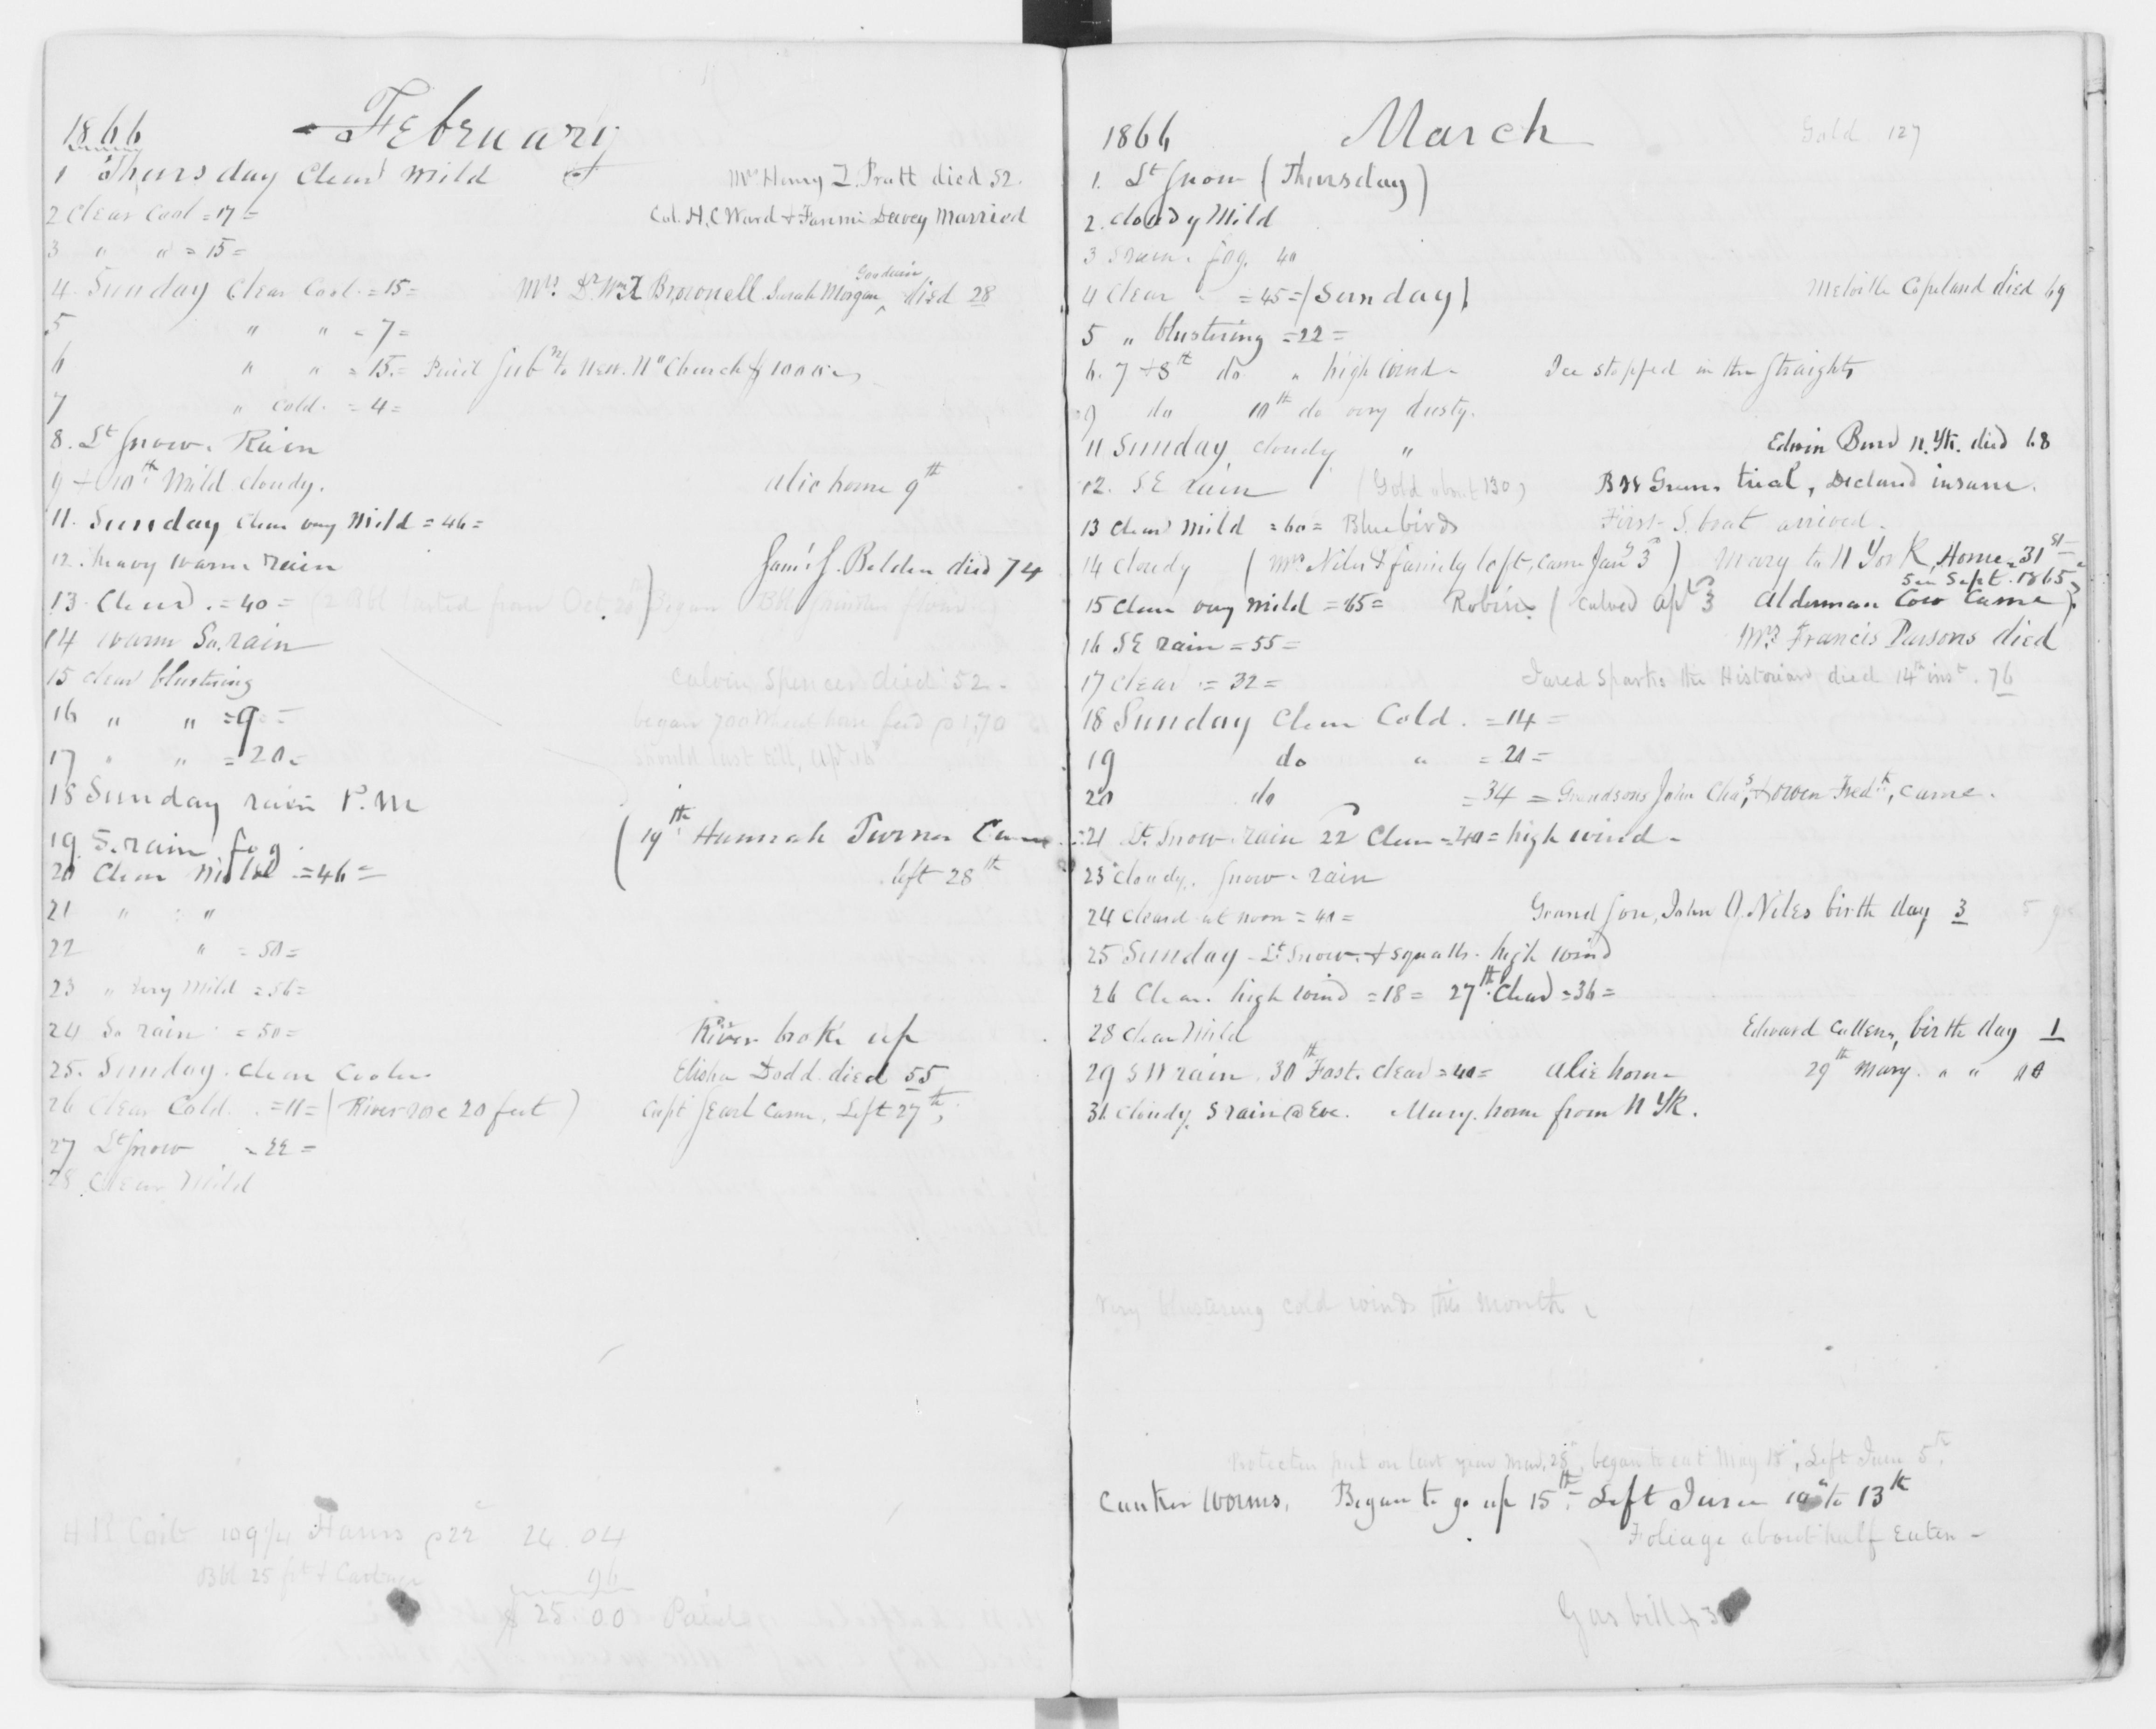 1866 February
1 Thursday Clear Mild Mrs Henry Z. Pratt died 52.
2 Clear Cool =17= Col. H. C Ward + Fannie Davey Married
3 " " =15=
4 Sunday Clear Cool =15= Mrs. Dr Wm Brownell Sarah Morgan Goodwin died 28
5 " " =7=
6 " " =15= Paid Subn to New. No Church $1000
7 " Cold. =4=
8. Lt Snow. Rain
9 + 10th Mild cloudy. Alic home 9th
11. Sunday Clear very Mild =46=
12. heavy warm rain Saml S. Belden died 74
13. Clear. =40= (2 Bbl lasted from Oct 20th) Began Bbl flour
14 warm So. rain
15 clear blustering Calvin Spencer died 52.
16 " " =9= began 700 Wheat horse feed @ 1,70
17 " " =20= should last till, Apr 16
18 Sunday rain P.M
19 S. rain fog. (19th Hannah Turner Came
20 Clear Mild =46= left 28th
21 " "
22 " =50=
23 " very Mild =56=
24 So rain =50= River broke up
25. Sunday. Clear Cooler. Elisha Dodd died 55
26 Clear Cold. =11= (River rose 20 feet) Capt Searl Came. Left 27th
27 Lt Snow =22=
28 Clear Mild
H. R Coit 109 1/4 Hams @22c 24.04
Bbl 25 + Cartage 96
$ 25.00 Paid
1866 March Gold 127
1. Lt Snow (Thursday)
2. Cloudy Mild
3 S rain. fog. 40
4 Clear =45= (Sunday) Melville Copeland died 69
5 " blustering =22=
6. 7 + 8th do " high wind - Ice stopped in the Straights
9 do 10th do very dusty.
11 Sunday cloudy " Edwin Burr N. Yk. died 68
12. SE rain (Gold about 130) B W Green trial, Declared insane.
13 Clear Mild =60= Bluebirds First S. boat arrived.
14 Cloudy (Mrs Niles & family left, came Jany 3) Mary to N York, Home 31st
15 Clear very mild =65= Robins (calved Apl 3 Alderman Cow Came See Sept. 1865)
16 SE rain =55= Mrs Francis Parsons died
17 Clear =32= Jared Sparks the Historian died 14th inst. 76
18 Sunday Clear Cold. =14=
19 do " =20=
20 do =34= Grandsons John Chas, & Owen Fredk, came.
21 Lt Snow. rain 22 Clear =40= high wind -
23 Cloudy. Snow. rain
24 Cleard at noon =40= Grand Son, John O. Niles birth day 3
25 Sunday - Lt Snow. + squalls. high wind
26 Clear. high wind =18= 27th. Clear =36=
28 Clear Mild Edward Cullens, birth day 1
29 S W rain. 30th Fast. clear =40= Alic home 29th Mary. " " 10
31. Cloudy. S rain @ Eve. Mary. home from N Yk.
Very blustering cold winds this Month.
Protectors put on last year Mar. 25, began to eat May 18, Left June 5th.
Canker Worms. Began to go up 15th. Left June 10 to 13th
Foliage about half Eaten -
Gas bill $ 30